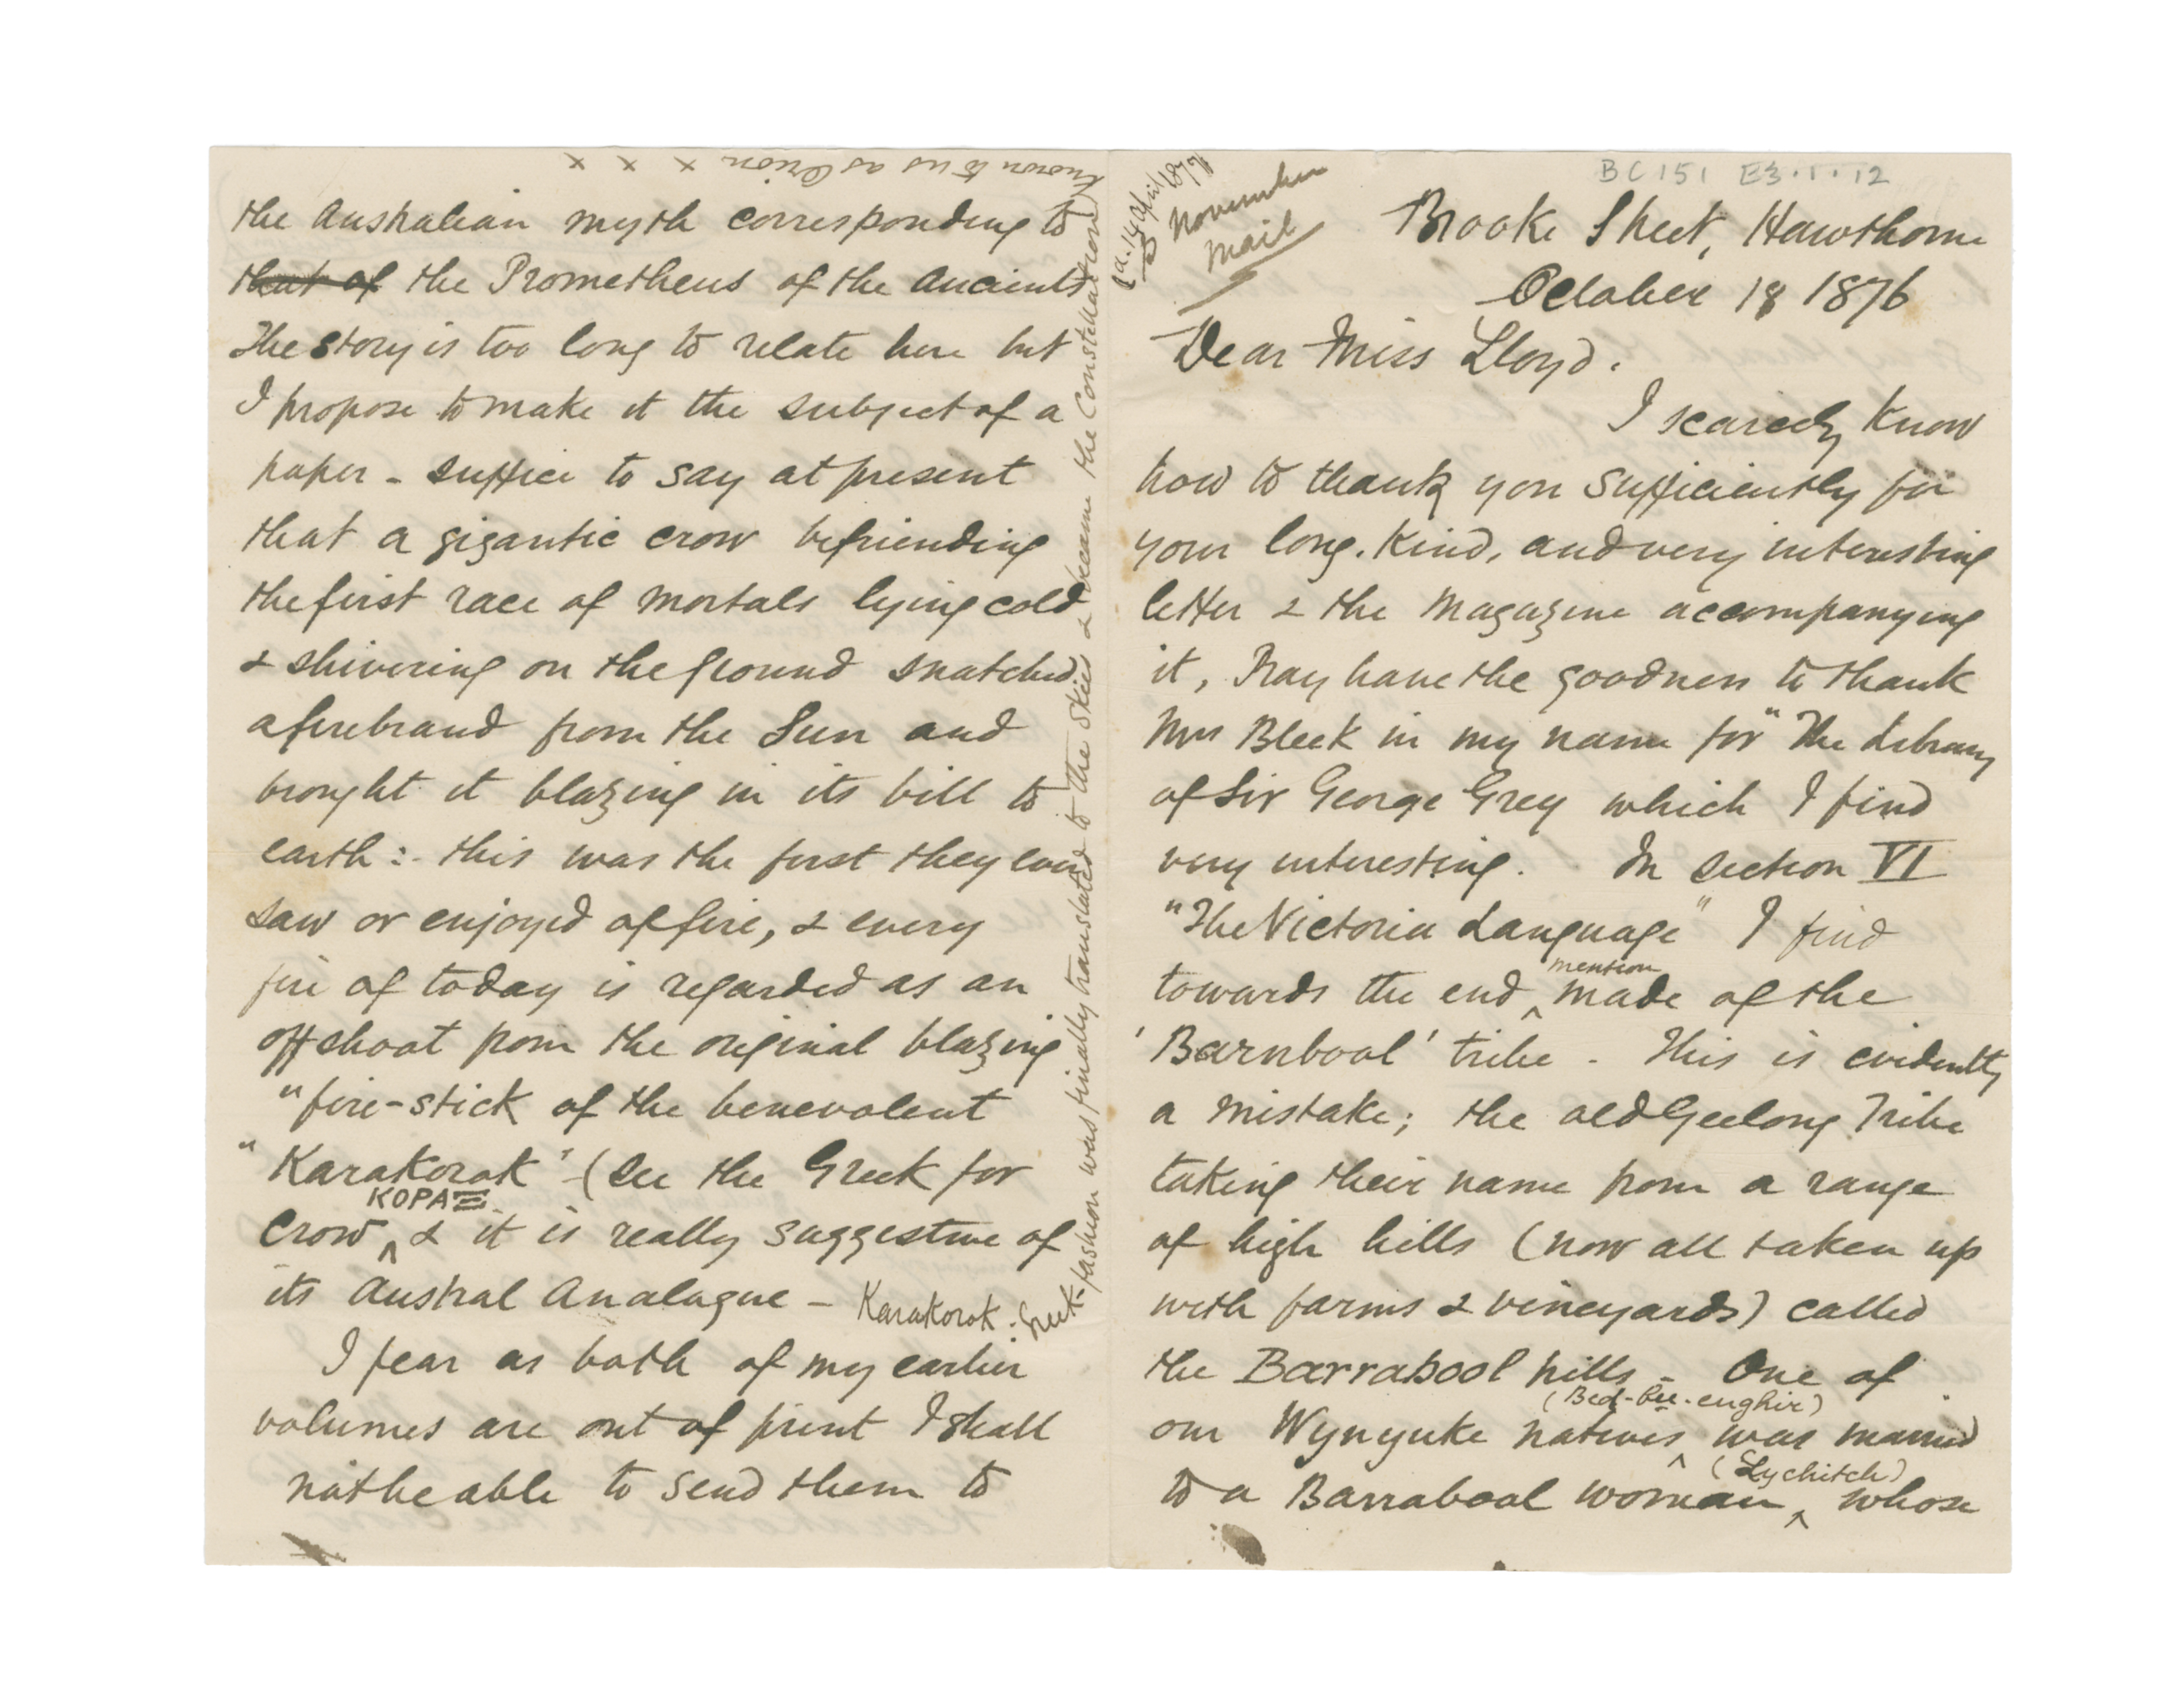 BC 151 E3.1.12
November
Mail
Brooke Street, Hawthorne
October 18 1876
Dear Miss Lloyd.
I scarcely know
how to thank you sufficiently for
your long, kind, and very interesting
letter & the Magazine accompanying
it, Pray have the goodness to thank
Mrs Bleek in my name for "The Library
of Sir George Grey which I find
very interesting. In section VI
"The Victoria Language" I find
towards the end mention made of the
'Barnbool' tribe - This is evidently
a mistake; the old Geelong Tribe
taking their name from a range
of high hills (now all taken up
with farms & vineyards) called
the Barrabool hills - One of
our Wynyuke natives (Bed-bu-enghir) was married
to a Barrabool woman (Lychitch) whose
the Australian myth corresponding to
that of the Prometheus of the Ancients
The story is too long to relate here but
I propose to make it the subject of a
paper - suffice to say at present
that a gigantic crow befriending
the first race of mortals lying cold
& shivering on the ground snatched
a firebrand from the Sun and
brought it blazing in its bill to
earth :- this was the first they ever
saw or enjoyed of fire, & every
fire of today is regarded as an
offshoot from the original blazing
"fire-stick of the benevolent
"Karakorok" - (see the Greek for
Crow ΚΟΡΑΞ & it is really suggestive of
its Austral Analogue - Karakorok. Greek-
fashion was finally translated to the skies & became the Constellation
known to us as Orion x x x
I fear as both of my earlier
volumes are out of print I shall
not be able to send them to